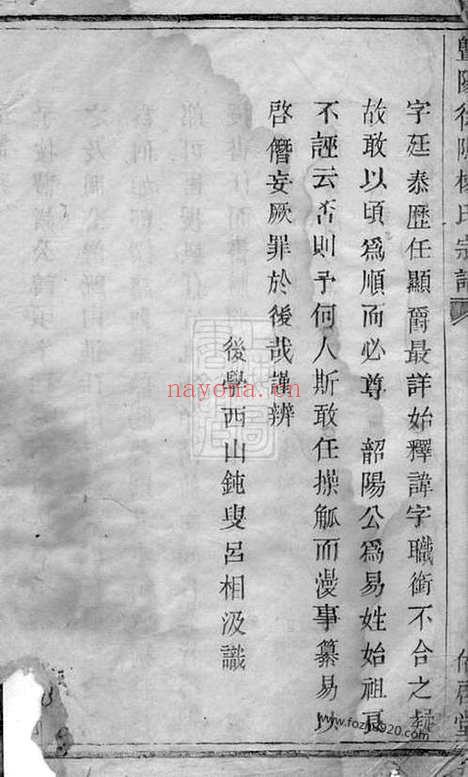 暨陽
氏宗譜
字廷泰歷任顯爵最詳始釋諱字職銜不合之疑
故敢以頃爲順而必尊 韶陽公爲易姓始祖真
不誣云否則予何人斯敢任操觚而漫事纂易以
啓僭妄厥罪於後哉謹辨
後學西山鈍叟呂相汲識
nayona.cn
www.fozhu920.com